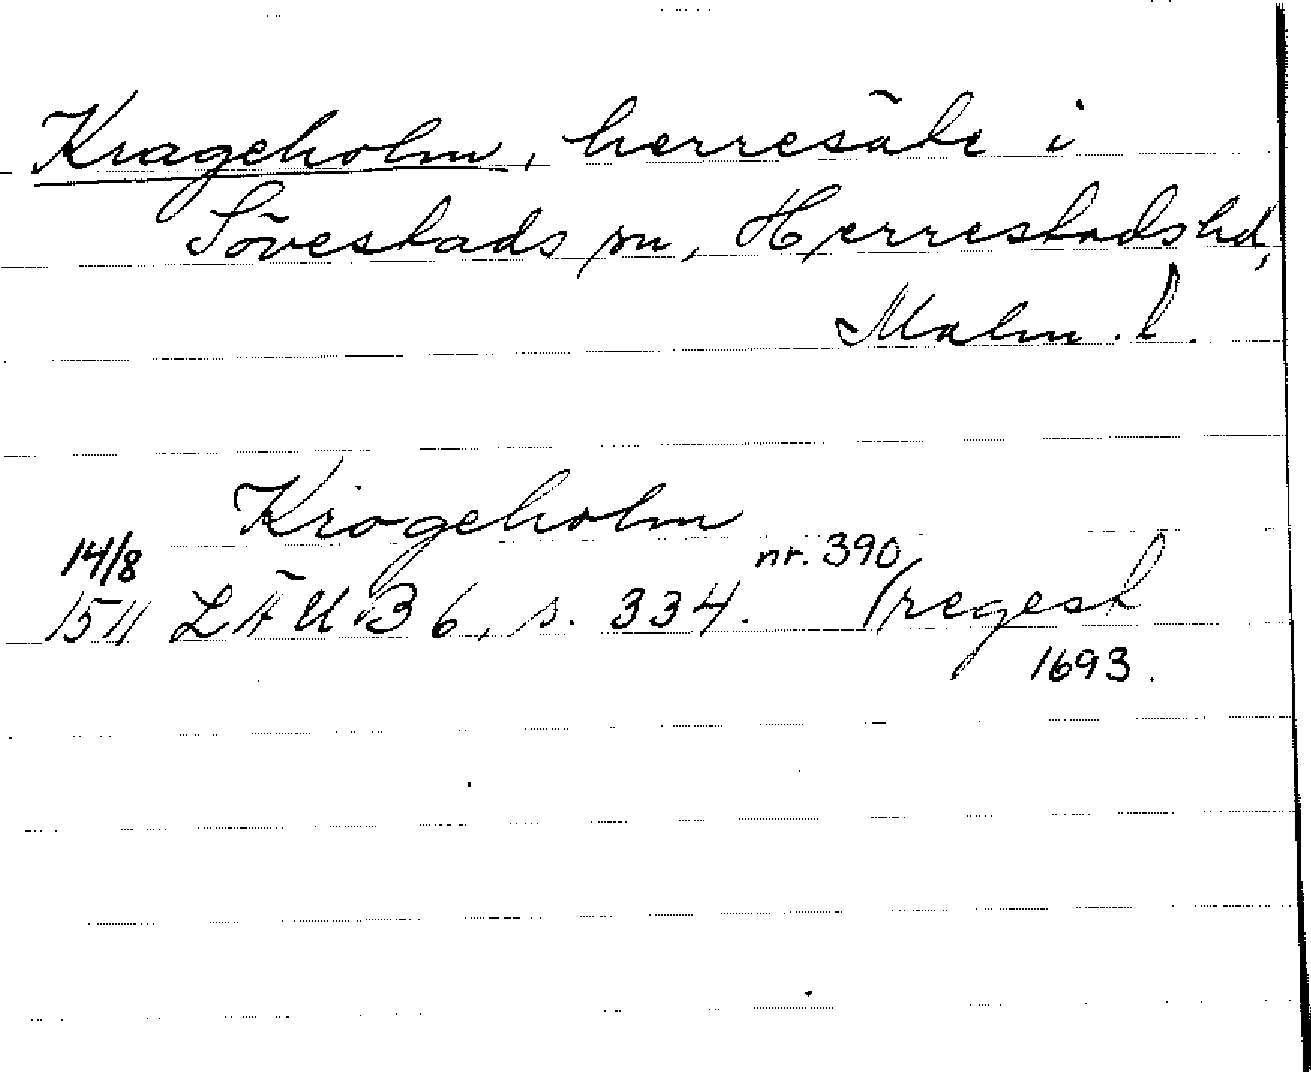 Krageholm, herresäte i
Sövestads sn, Herrestads hd,
Malm. l.
Krogeholm
14/8
1511 LÄUB 6, s. 334. nr. 390 (regest
1693.